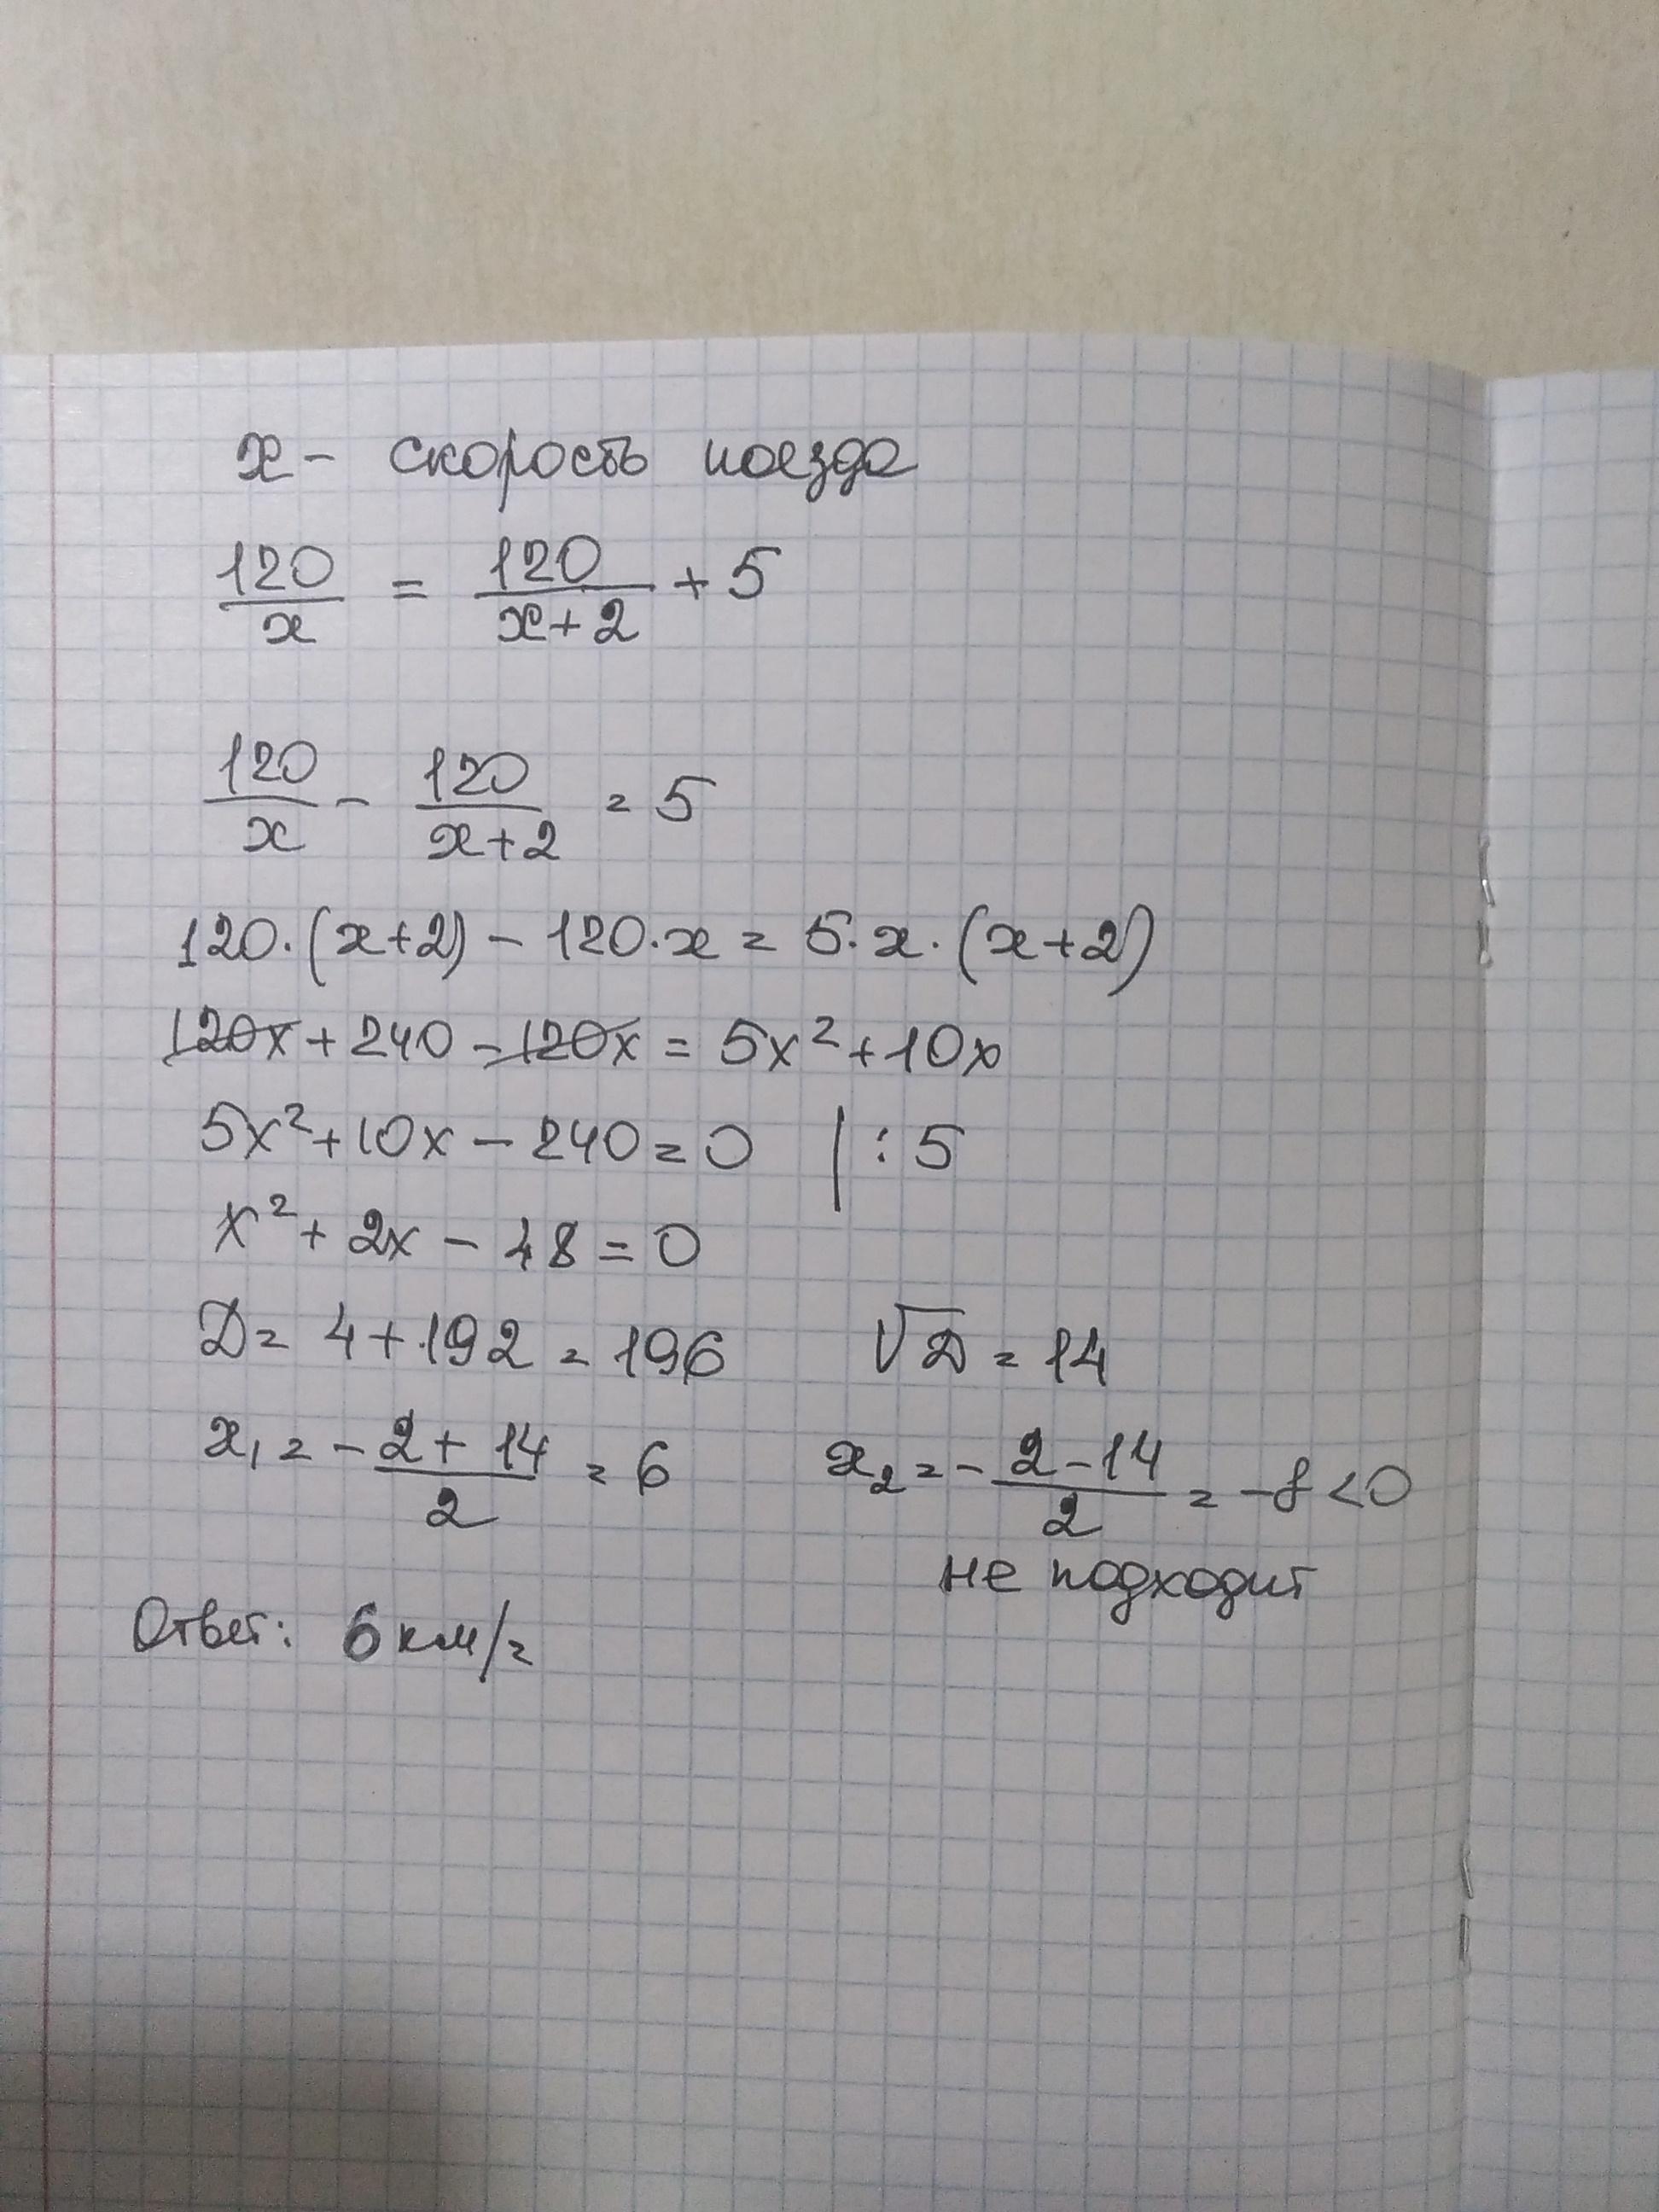 x - скорость поезда
120/x = 120/(x+2) + 5
120/x - 120/(x+2) = 5
120·(x+2) - 120·x = 5·x·(x+2)
120x + 240 - 120x = 5x² + 10x
5x² + 10x - 240 = 0 | : 5
x² + 2x - 48 = 0
D = 4 + 192 = 196 √D = 14
x₁ = -2+14/2 = 6 x₂ = -2-14/2 = -8 < 0
не подходит
Ответ: 6 км/ч